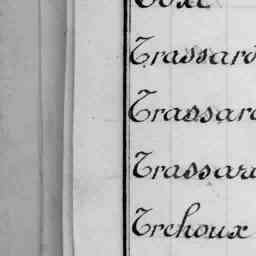 Trassard
Trassard
Trassard
Trehoux